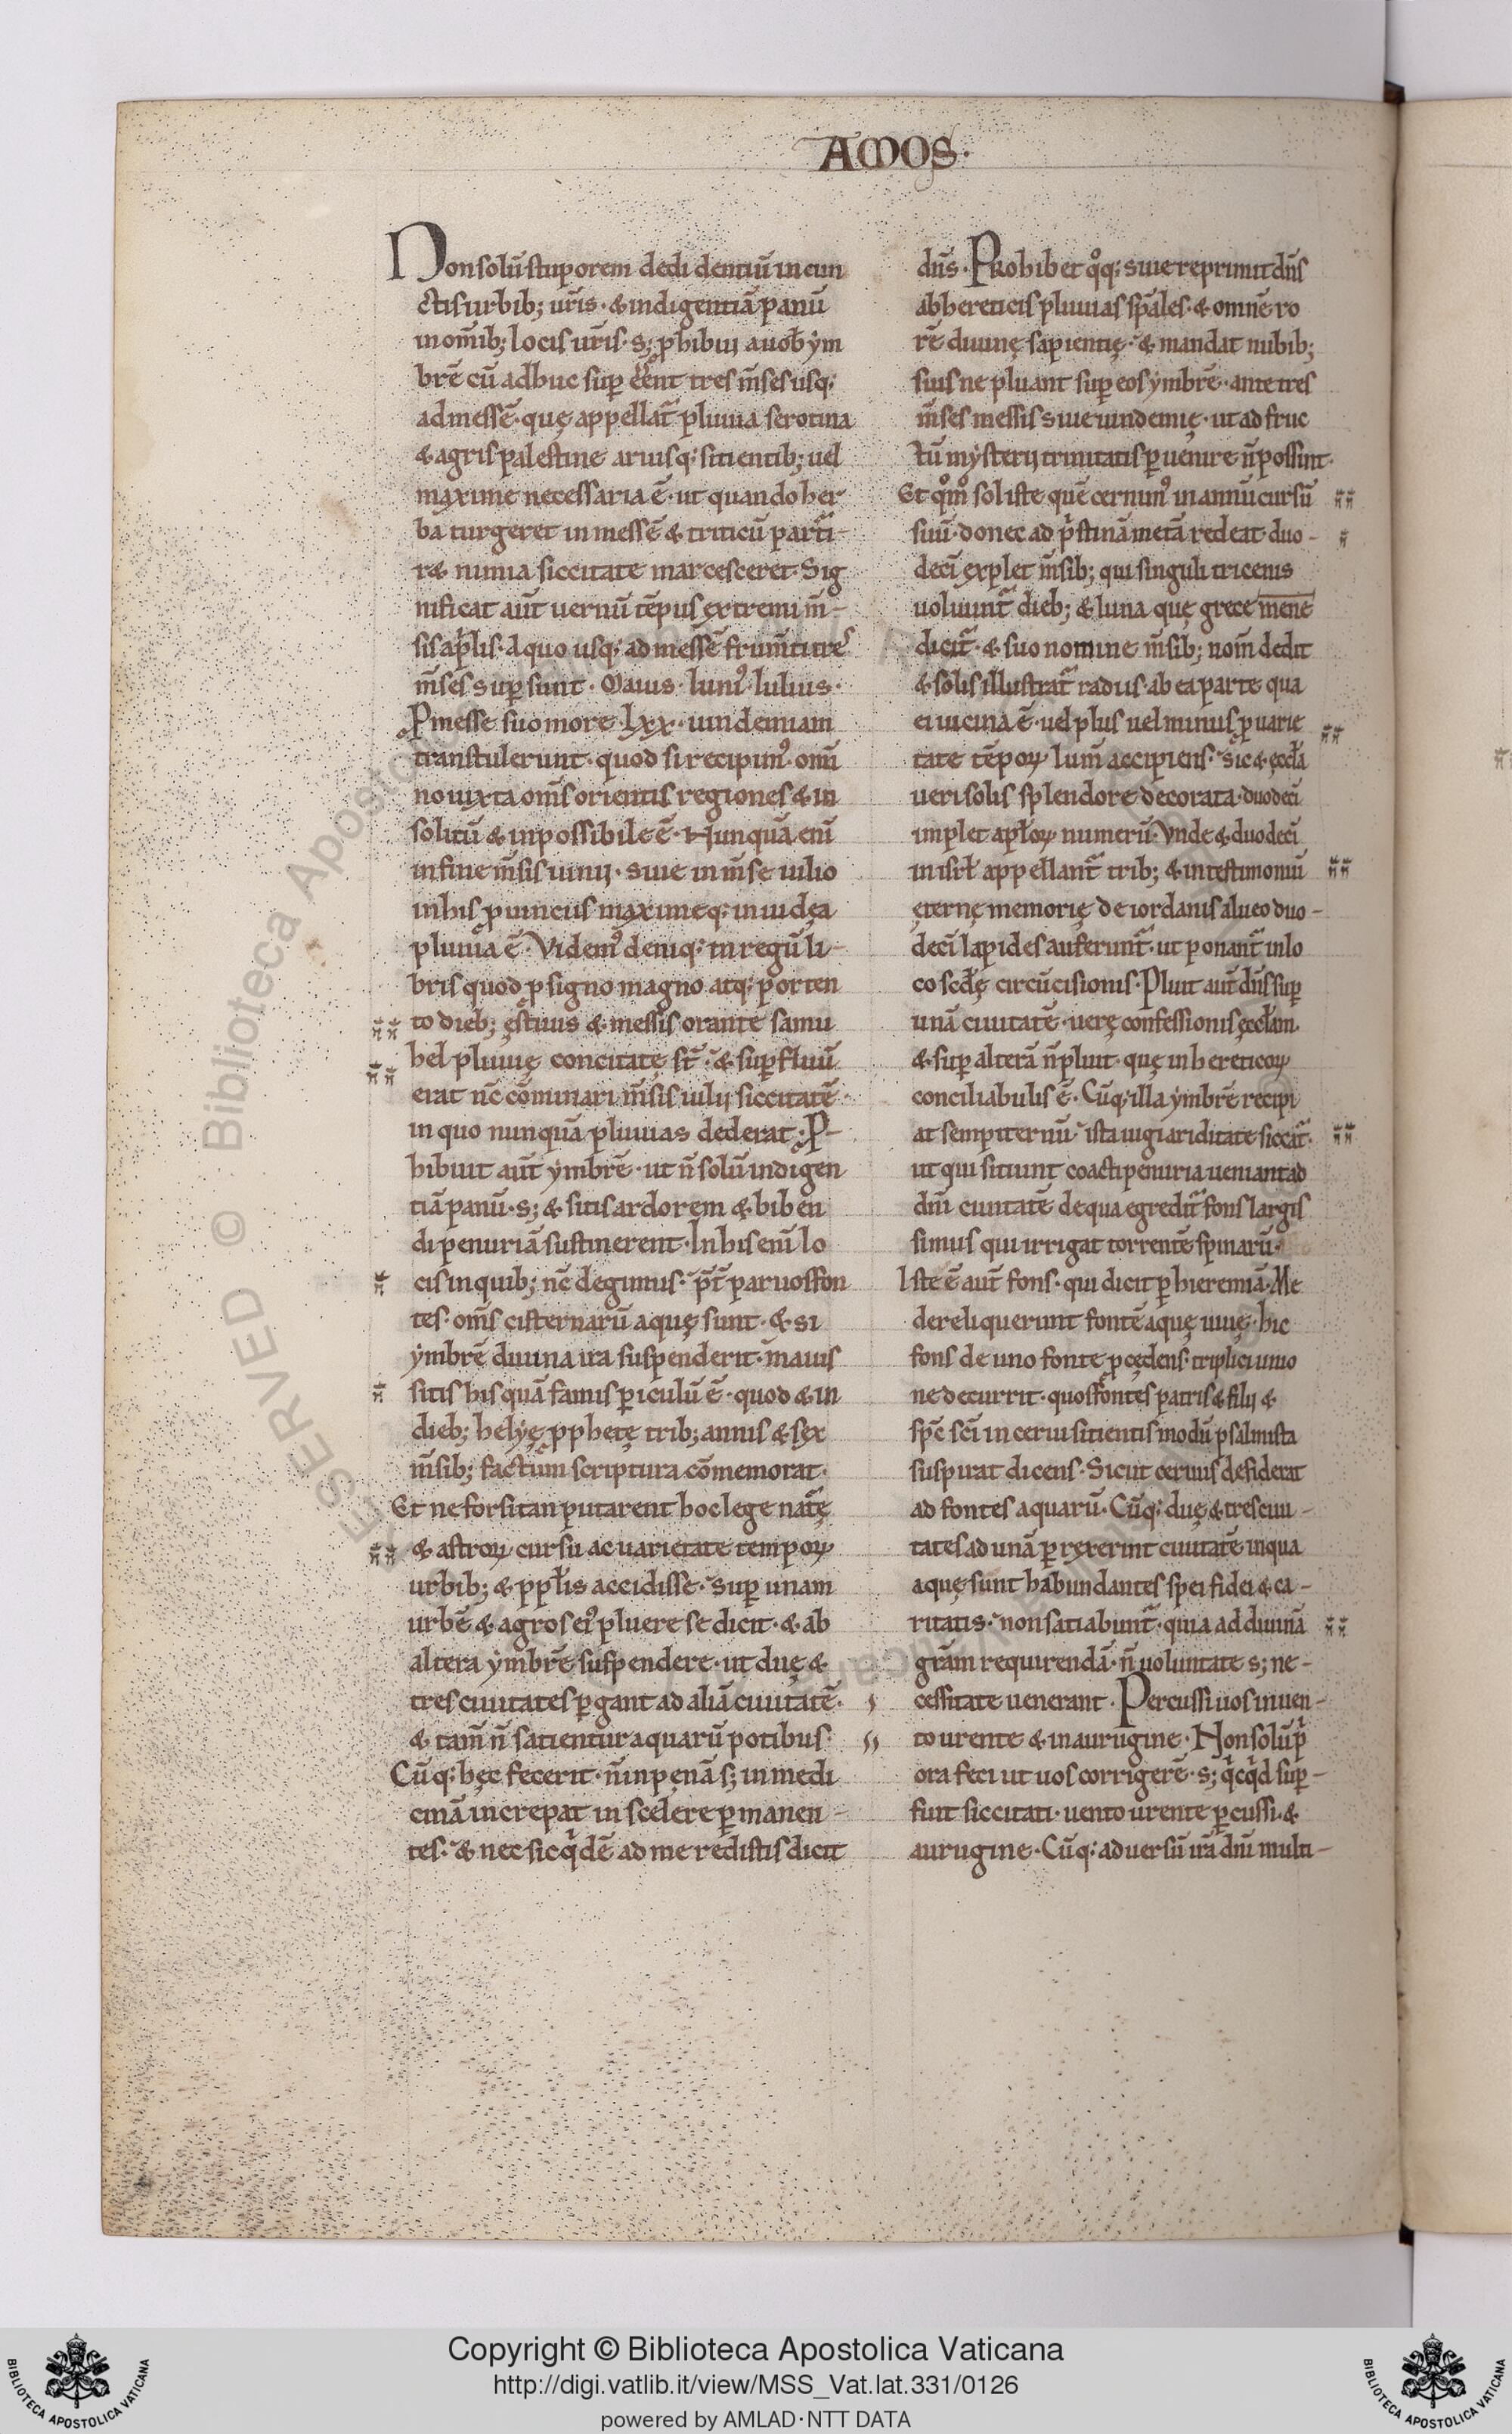 AMOS·
Non solū stuporem dedi dentiū in cun
ctis urbib; ur̄is · & indigentiā panū
in om̄ib; locis ur̄is · s; ꝓhibui a uob̄ ym
brē cū adhuc suꝑ eēnt tres m̄ses usq;
ad messē · quę appellat̄ pluuia serotina
& agris palestine aruisq; sitientib; uel
maxime necessaria ē · ut quando her
ba turgeret in messē & triticū parti-
ræ nimia siccitate marcesceret · Sig
nificat aūt uernū tēpus extremi m̄-
sis ap̄lis · a quo usq; ad messē frum̄ti tres
m̄ses suꝑ sunt · Maius · iuni᾿ · Iulius ·
Ꝓ messe suo more · lxx · uindemiam
transtulerunt · quod si recipim᾿ · om̄i
no iuxta om̄s orientis regiones & in
solitū & inpossibile ē · Nunquā eni
in fine m̄sis iunii · siue in m̄se iulio
in his ꝓuinciis maximeq; in iudęa
pluuia ē · Videm᾿ deniq; in regū li-
bris quod ꝓ signo magno atq; porten
to dieb; ęstiuis & messis orante samu
hel pluuię concitatę st̄ · & suꝑfluū
erat nc̄ cōminari m̄sis iulij siccitatē ·
in quo nunquā pluuias dederat · Ꝓ-
hibuit aūt ymbrē · ut n̄ solū indigen
tiā panū · s; & sitis ardorem & biben
di penuriā sustinerent · In his eni lo
cis in quib; nc̄ degimus · p̄t̄ paruos fon
tes · om̄s cisternarū aquę sunt · & si
ymbrē diuina ira suspenderit · m̄aius
sitis his quā famis ꝑiculū ē · quod & in
dieb; helyę ꝓphetę trib; annis & sex
m̄sib; factum scriptura cōmemorat ·
Et ne forsitan putarent hoc lege nat̄ę
& astroꝝ cursu ac uarietate tempoꝝ
urbib; & ppłis accidisse · suꝑ unam
urbē & agros ei᾿ pluere se dicit · & ab
altera ymbrē suspendere · ut duę &
tres ciuitates ꝑgant ad aliā ciuitatē ·
& tam̄ n̄ satientur aquarū potibus ·
Cūq; hęc fecerit · n̄ in pęnā s; in medi
cinā increpat in scelere ꝑmanen-
tes · & nec sic qⁱdē ad me redistis dicit
dn̄s · Prohibet q°q; siue reprimit dn̄s
ab hereticis pluuias sp̄ales · & omnē ro
rē diuinę sapientię · & mandat nubib;
suis ne pluant suꝑ eos ymbrē · ante tres
m̄ses messis siue uindemię · ut ad fruc
tū mysterij trinitatis ꝑuenire n̄ possint ·
Et q°m° sol iste quē cernim᾿ in annū cursū
suū · donec ad pⁱstinā metā redeat duo-
deci explet m̄sib; qui singuli tricenis
uoluunt̄ dieb; & luna quę grece mene
dicit̄ · & suo nomine m̄sib; nom̄ dedit
& solis illustrat̄ radiis · ab ea parte qua
ei uicina ē · uel plus uel minus ꝓ uarie
tate tēpoꝝ lum̄ accipiens · sic & ęccła
ueri solis splendore decorata · duodeci
implet apłoꝝ numerū · Vnde & duodeci
in isrł appellant̄ trib; & in testimoniū
ęternę memorię de iordanis alueo duo-
deci lapides auferunt̄ · ut ponant̄ in lo
co scd̄ę circūcisionis · Pluit aūt dn̄s suꝑ
unā ciuitatē · uerę confessionis ęccłam ·
& suꝑ alterā n̄ pluit · quę in hereticoꝝ
conciliabulis ē · Cūq; illa ymbrē recipi
at sempiternū · ista iugi ariditate siccat̄ ·
ut qui sitiunt coacti penuria ueniant ad
dn̄i ciuitatē de qua egredit̄ fons largis
simus qui irrigat torrentē spinarū ·
Iste ē aūt fons · qui dicit ꝑ hieremiā · Me
dereliquerunt fontē aquę uiuę · hic
fons de uno fonte ꝓcędens · triplici uno
ne decurrit · quos fontes patris & filij &
spc̄ sci in cerui sitientis modū psalmista
suspirat dicens · Sicut ceruus desiderat
ad fontes aquarū · Cūq; duę & tres ciui-
tates ad unā ꝑrexerint ciuitatē in qua
aquę sunt habundantes spei fidei & ca-
ritatis · non satiabunt̄ · quia ad diuinā
gr̄am requirendā · n̄ uoluntate s; ne-
cessitate uenerant · Percussi uos in uen-
to urente & in aurugine · Non solū pⁱ
ora feci ut uos corrigerē · s; qⁱcqⁱd suꝑ-
fuit siccitati · uento urente ꝑcussi · &
aurugine · Cūq; aduersū ir̄a dn̄i multi-
Copyright © Biblioteca Apostolica Vaticana
http://digi.vatlib.it/view/MSS_Vat.lat.331/0126
powered by AMLAD·NTT DATA
BIBLIOTECA APOSTOLICA VATICANA
BIBLIOTECA APOSTOLICA VATICANA